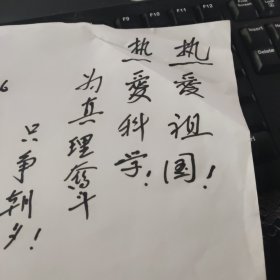 热爱祖国！
热愛科学！
为真理奮斗
只争朝夕！
6
F9
F10
F11
F12